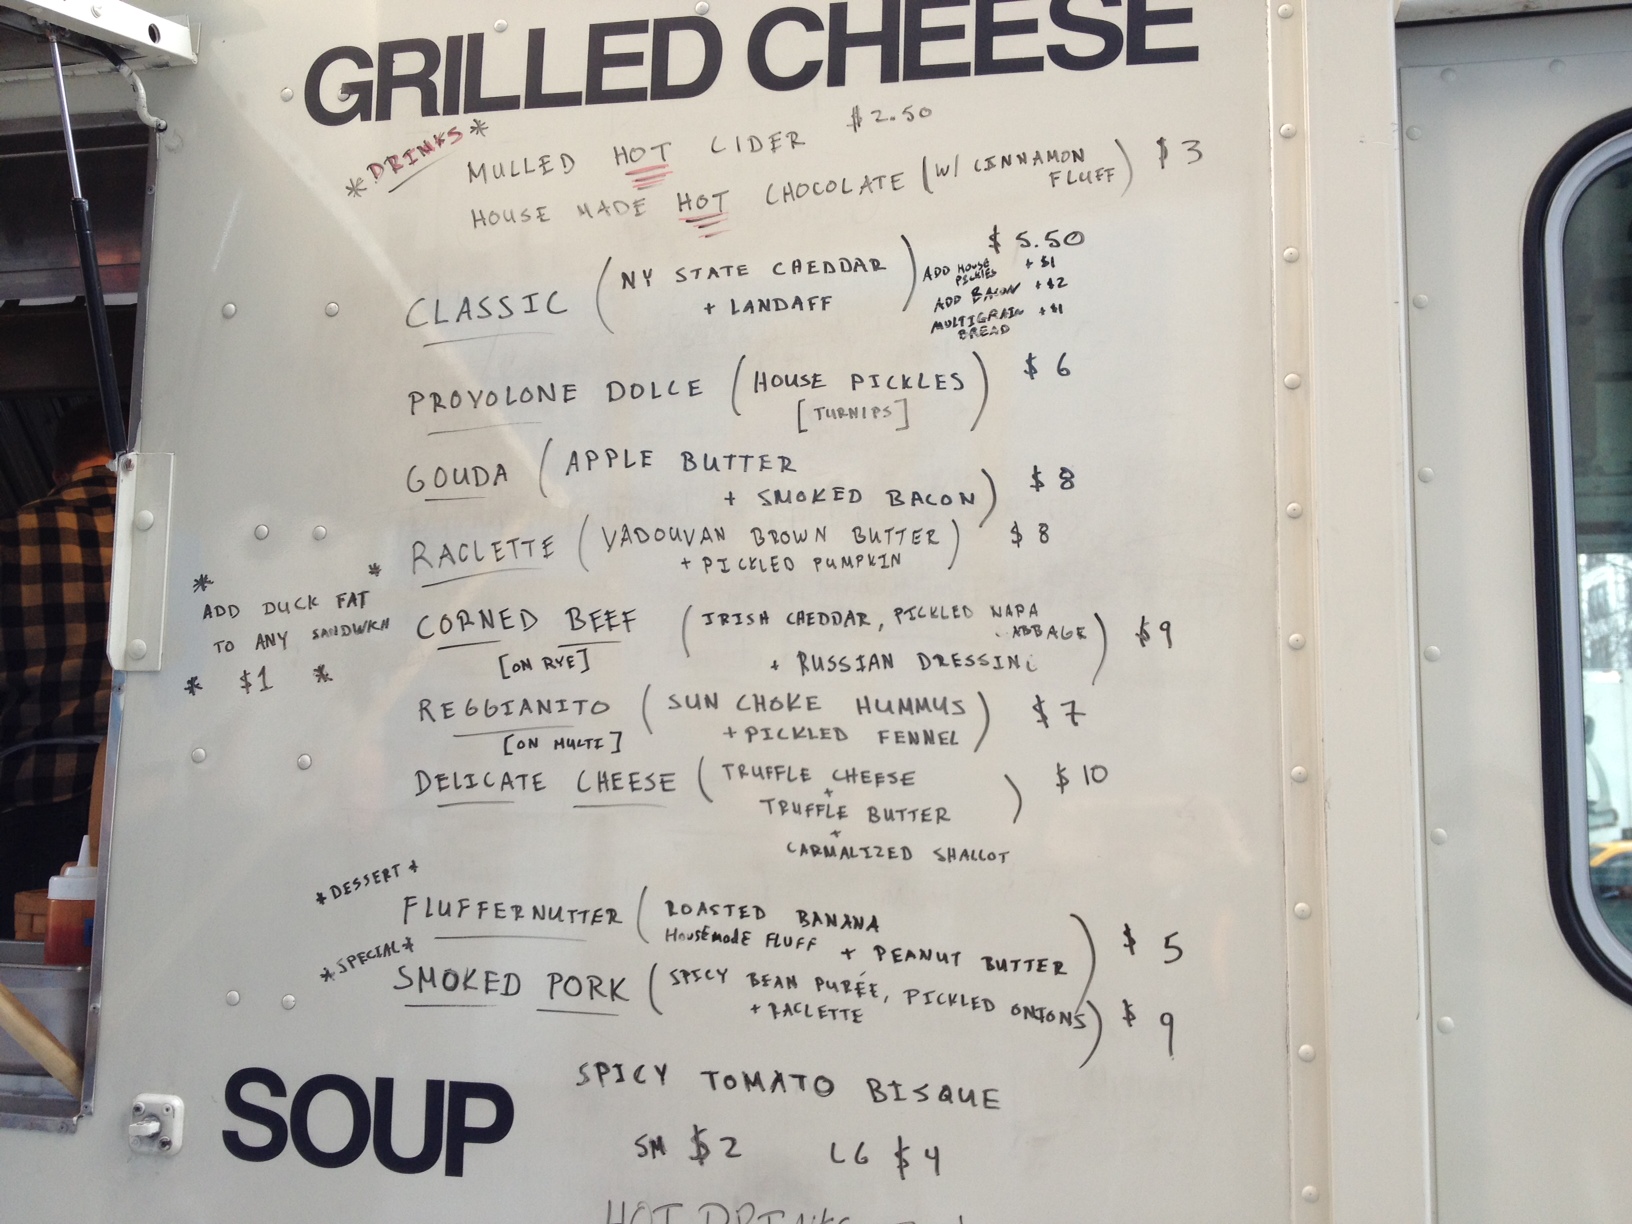 GRILLED CHEESE
*DRINKS*
MULLED HOT CIDER $2.50
HOUSE MADE HOT CHOCOLATE (W/ CINNAMON FLUFF) $3
CLASSIC (NY STATE CHEDDAR + LANDAFF) $5.50
ADD HOUSE PICKLES +$1
ADD BACON +$2
MULTIGRAIN BREAD +$1
PROVOLONE DOLCE (HOUSE PICKLES) $6
[TURNIPS]
GOUDA (APPLE BUTTER
+ SMOKED BACON) $8
RACLETTE (VADOUVAN BROWN BUTTER) $8
+ PICKLED PUMPKIN
* *
ADD DUCK FAT
TO ANY SANDWICH
* $1 *
CORNED BEEF (IRISH CHEDDAR, PICKLED NAPA ABBAGE) $9
[ON RYE] + RUSSIAN DRESSIN
REGGIANITO (SUN CHOKE HUMMUS) $7
[ON MULTI] + PICKLED FENNEL
DELICATE CHEESE (TRUFFLE CHEESE $10
+
TRUFFLE BUTTER)
+
CARMALIZED SHALLOT
*DESSERT*
FLUFFERNUTTER (ROASTED BANANA
HOUSEMADE FLUFF + PEANUT BUTTER) $5
*SPECIAL*
SMOKED PORK (SPICY BEAN PURÉE, PICKLED ONIONS) $9
+ RACLETTE
SOUP
SPICY TOMATO BISQUE
SM $2 LG $4
HOT DRINKS